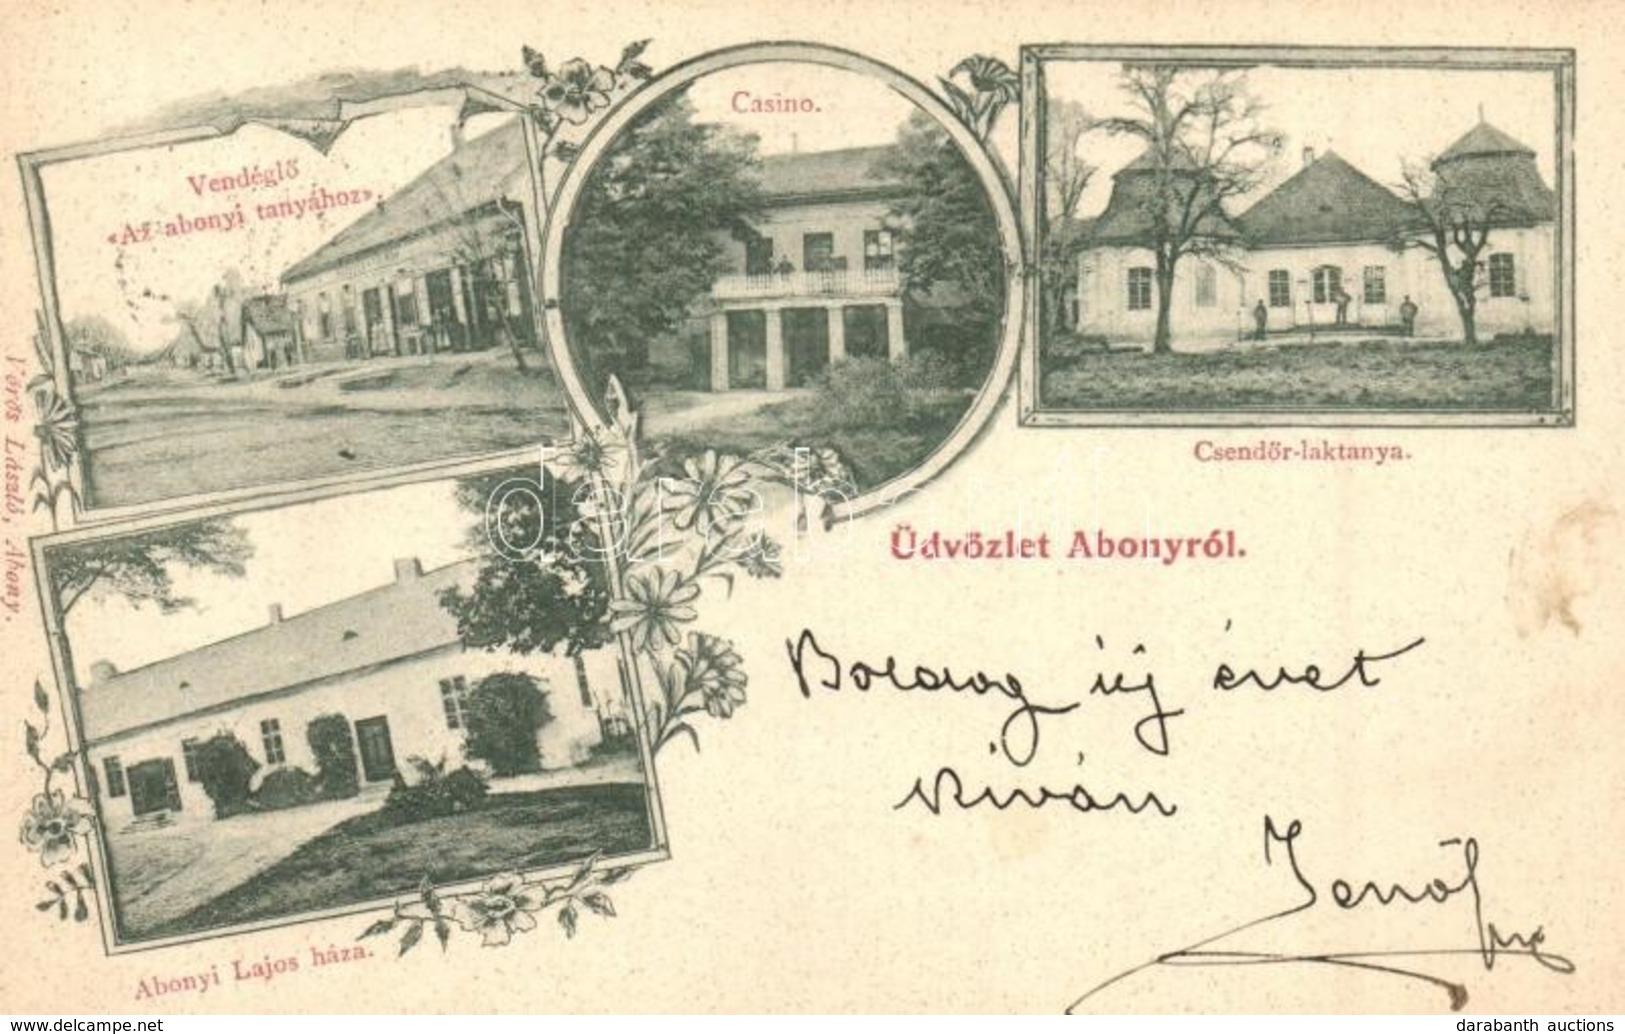 Vendéglő
«Az abonyi tanyához».
Casino.
Csendőr-laktanya.
Vörös László, Abony.
darabanth
Üdvözlet Abonyról.
Boldog új évet
kíván
Jenő
Abonyi Lajos háza.
https://www.delcampe.net
darabanth auctions